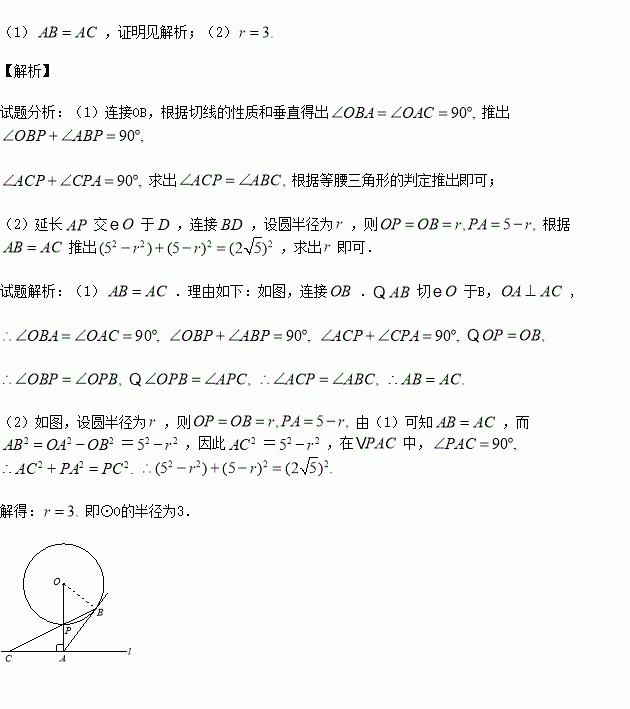 (1) AB = AC ，证明见解析；(2) r = 3.
【解析】
试题分析：(1)连接OB，根据切线的性质和垂直得出∠OBA = ∠OAC = 90°, 推出
∠OBP + ∠ABP = 90°,
∠ACP + ∠CPA = 90°, 求出∠ACP = ∠ABC, 根据等腰三角形的判定推出即可；
(2)延长 AP 交 e O 于 D ，连接 BD ，设圆半径为 r ，则 OP = OB = r, PA = 5 − r, 根据
AB = AC 推出 (5² − r²) + (5 − r)² = (2√5)² ，求出 r 即可．
试题解析：(1) AB = AC ．理由如下：如图，连接 OB ．Q AB 切 e O 于B，OA ⊥ AC ，
∴ ∠OBA = ∠OAC = 90°, ∠OBP + ∠ABP = 90°, ∠ACP + ∠CPA = 90°, Q OP = OB,
∴ ∠OBP = ∠OPB, Q ∠OPB = ∠APC, ∴ ∠ACP = ∠ABC, ∴ AB = AC.
(2)如图，设圆半径为 r ，则 OP = OB = r, PA = 5 − r, 由(1)可知 AB = AC ，而
AB² = OA² − OB² ＝ 5² − r² ，因此 AC² ＝ 5² − r² ，在 V PAC 中，∠PAC = 90°,
∴ AC² + PA² = PC². ∴ (5² − r²) + (5 − r)² = (2√5)².
解得：r = 3. 即⊙O的半径为3．
O
B
P
C A l